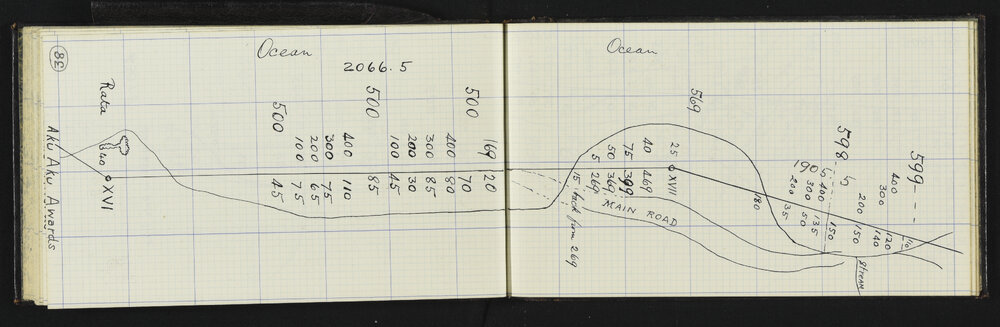 38
Ocean
2066.5
Rata
40 ⊙ XVI
Aku Aku Awards
500
45
100 75
200 65
300 75
400 110
500 85
100 45
200 30
300 85
400 80
500 70
169 20
Ocean
569
5 269
50 369
75 399
40 469
25 ⊙ XVII
15 back from 269
MAIN ROAD
180
190
200 35
300 50
400 135
150
598.5
200 150
300 140
400 120
110
599 - - -
Stream